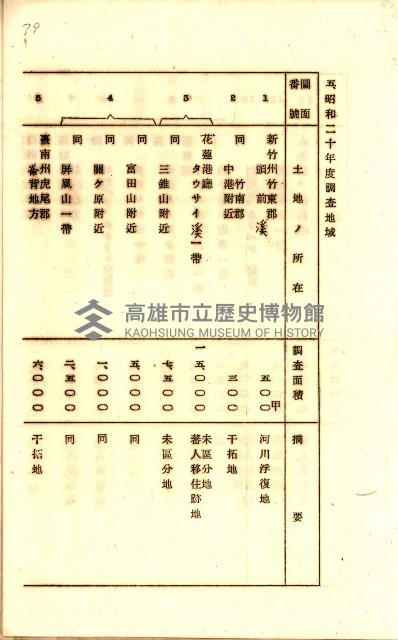 79
五、昭和二十年度調査地域
圖面番號
土地ノ所在
調査面積
摘要
1
新竹州竹東郡
頭前溪
五〇〇甲
河川浮復地
2
同 竹南郡
中港附近
三〇〇
干拓地
3
花蓮港廳
タウサイ溪一帶
一五、〇〇〇
未區分地
蕃人移住跡地
同
三錐山附近
七、五〇〇
未區分地
4
同
富田山附近
五、〇〇〇
同
同
關ケ原附近
一、〇〇〇
同
同
屏風山一帶
二、五〇〇
同
5
臺南州虎尾郡
蕃背地方
六、〇〇〇
干拓地
高雄市立歷史博物館
KAOHSIUNG MUSEUM OF HISTORY